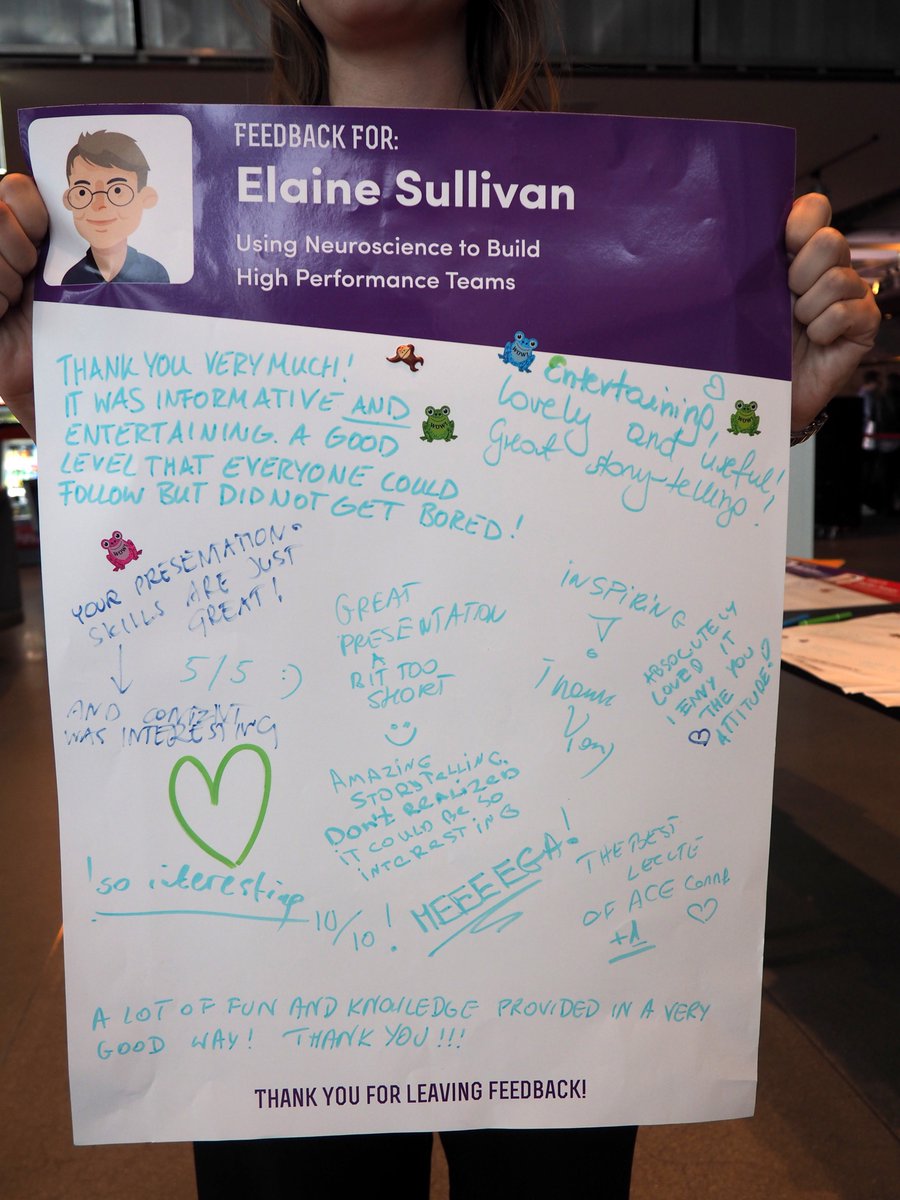 FEEDBACK FOR:
Elaine Sullivan
Using Neuroscience to Build
High Performance Teams
THANK YOU VERY MUCH!
IT WAS INFORMATIVE AND
ENTERTAINING. A GOOD
LEVEL THAT EVERYONE COULD
FOLLOW BUT DID NOT GET BORED!
WOW!
WOW!
WOW!
Entertaining,
Lovely and useful!
Great story-telling!
WOW!
YOUR PRESENTATION-
SKILLS ARE JUST
GREAT!
5/5 :)
AND CONTENT
WAS INTERESTING
GREAT
PRESENTATION
A
BIT TOO
SHORT
INSPIRING
ABSOLUTELY
LOVED IT
I ENVY YOU
THE
ATTITUDE!
AMAZING
STORYTELLING.
DON'T REALIZED
IT COULD BE SO
INTERESTING
!so interesting
10/10!
MEEEEGA!
THE BEST
LECTE
OF ACE Conne
+1
A LOT OF FUN AND KNOWLEDGE PROVIDED IN A VERY
GOOD WAY! THANK YOU!!!
THANK YOU FOR LEAVING FEEDBACK!